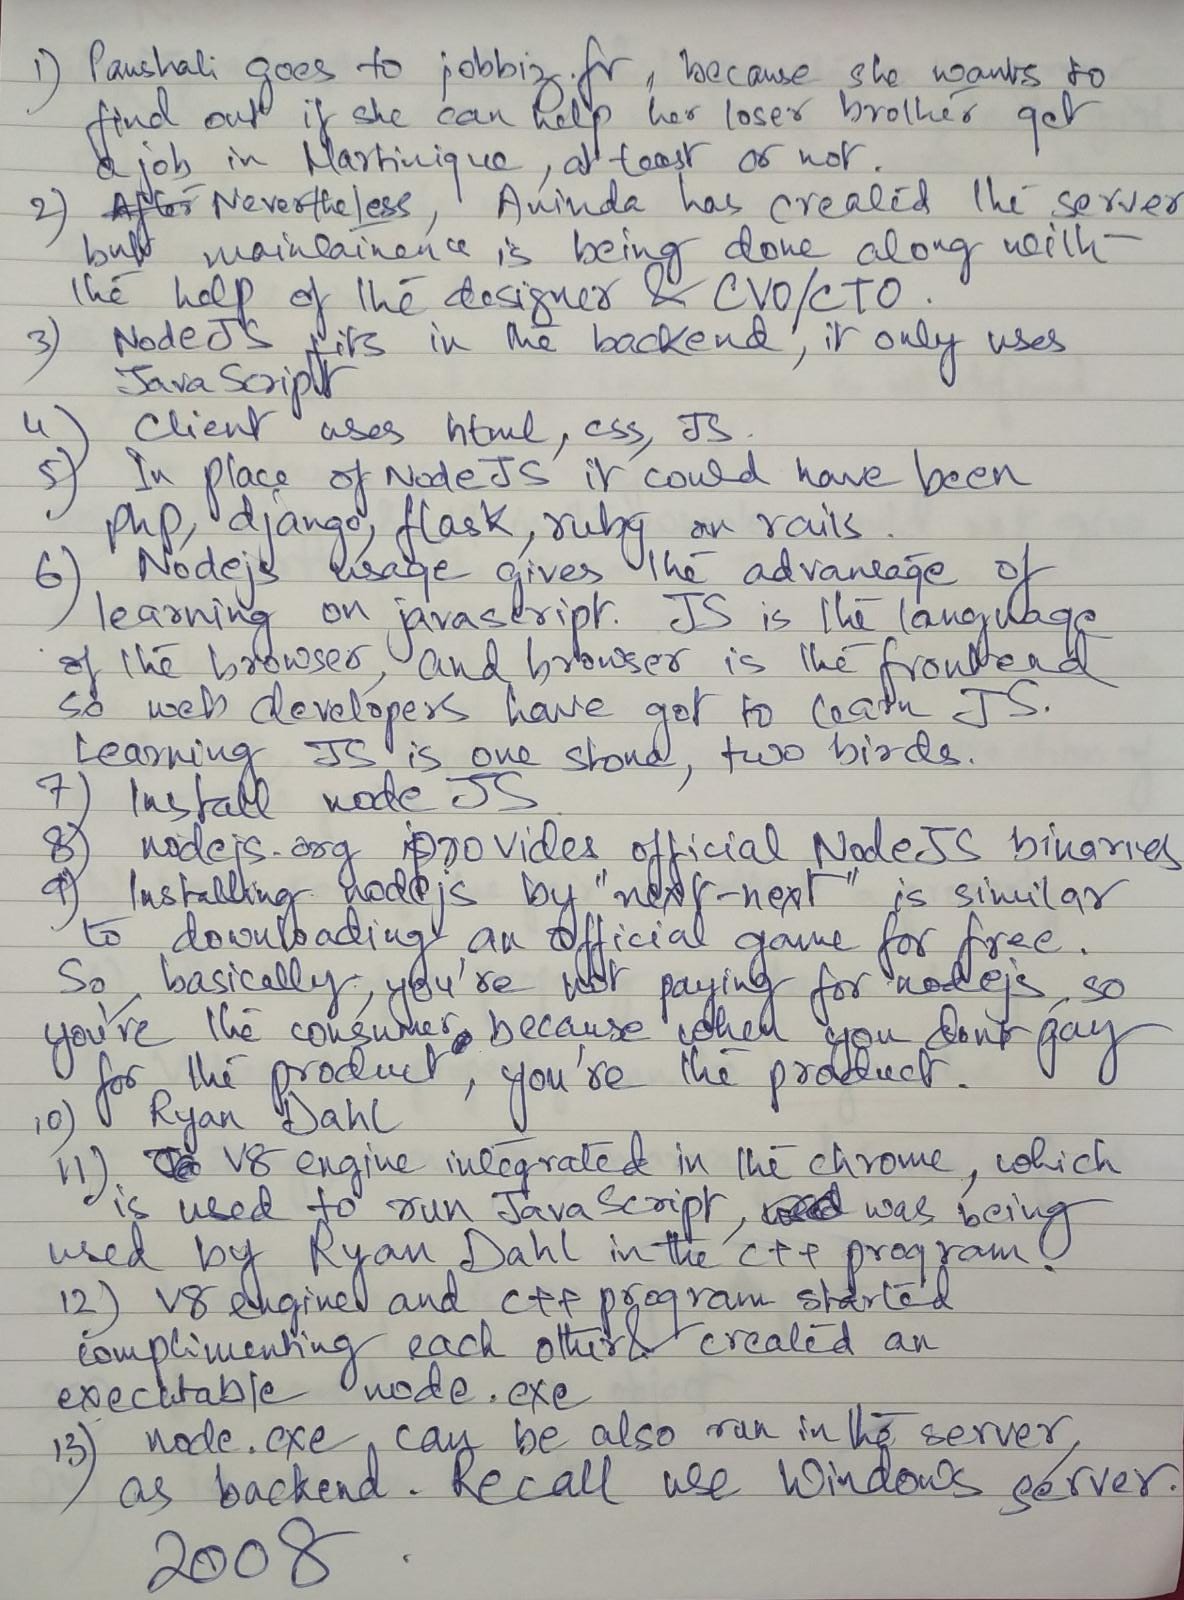 1) Paushali goes to jobbiz.fr, because she wants to
find out if she can help her loser brother get
a job in Martinique, at least or not.
2) After Nevertheless, Aninda has created the server
but maintainence is being done along with
the help of the designer & CVO/CTO.
3) NodeJS fits in the backend, it only uses
JavaScript
4) Client uses html, css, JS.
5) In place of NodeJS it could have been
php, django, flask, ruby on rails.
6) Nodejs usage gives the advantage of
learning on javascript. JS is the language
of the browser, and browser is the frontend
so web developers have got to learn JS.
Learning JS is one stone, two birds.
7) Install node JS
8) nodejs.org provides official NodeJS binaries
9) Installing nodejs by "next-next" is similar
to downloading an official game for free.
So, basically, you're not paying for nodejs, so
you're the consumer, because when you don't pay
for the product, you're the product.
10) Ryan Dahl
11) V8 engine integrated in the chrome, which
is used to run JavaScript, was being
used by Ryan Dahl in the c++ program.
12) V8 engine and c++ program started
complimenting each other & created an
executable node.exe
13) node.exe can be also ran in the server,
as backend. Recall use Windows server.
2008.